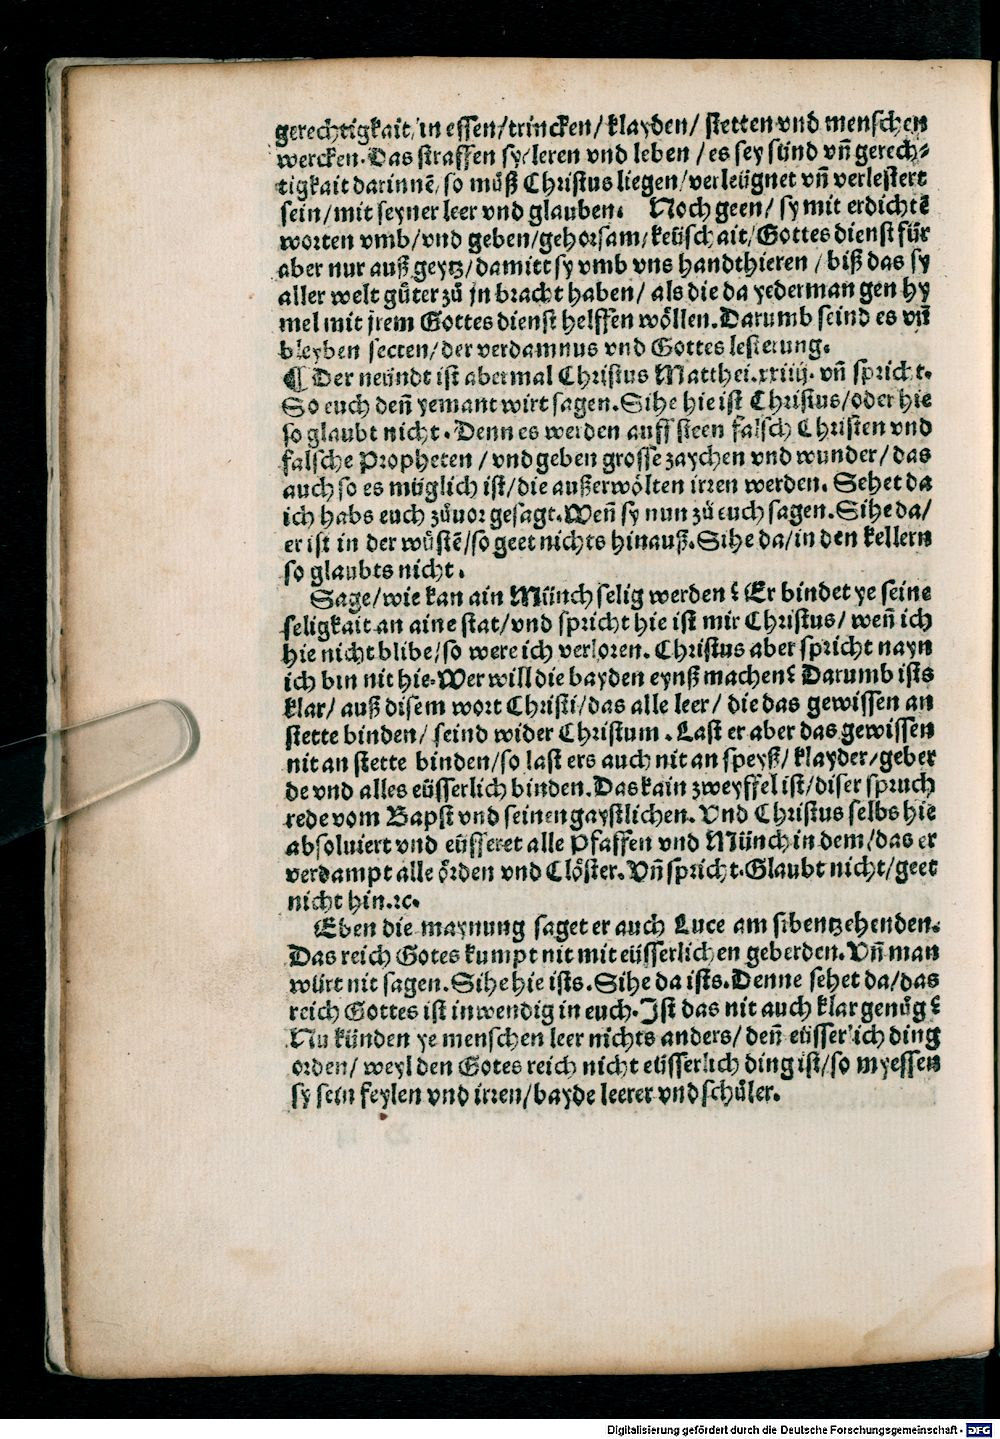 gerechtigkait/in essen/trincken/klayden/stetten vnd menschen
wercken. Das straffen sy/leren vnd leben/es sey sünd vñ gerech⸗
tigkait darinnẽ/so müß Christus liegen/verleügnet vñ verlestert
sein/mit seyner leer vnd glauben. Noch geen/sy mit erdichtẽ
worten vmb/vnd geben/gehorsam/keüschait/Gottes dienst für
aber nur auß geytz/damitt sy vmb vns handthieren/biß das sy
aller welt gůter zů jn bracht haben/als die da yederman gen hy
mel mit jrem Gottes dienst helffen wöllen. Darumb seind es vñ
bleyben secten/der verdamnus vnd Gottes lesterung.
¶ Der neündt ist abermal Christus Matthei. xxiiij. vñ spricht.
So euch deñ yemant wirt sagen. Sihe hie ist Christus/oder hie
so glaubt nicht. Denn es werden auff steen falsch Christen vnd
falsche Propheten/vnd geben grosse zaychen vnd wunder/das
auch so es müglich ist/die außerwölten irren werden. Sehet da
ich habs euch zůuor gesagt. Weñ sy nun zů euch sagen. Sihe da/
er ist in der wůstẽ/so geet nichts hinauß. Sihe da/in den kellern
so glaubts nicht.
Sage/wie kan ain Münch selig werden? Er bindet ye seine
seligkait an aine stat/vnd spricht hie ist mir Christus/weñ ich
hie nicht blibe/so were ich verloren. Christus aber spricht nayn
ich bin nit hie. Wer will die bayden eynß machen? Darumb ists
klar/auß disem wort Christi/das alle leer/die das gewissen an
stette binden/seind wider Christum. Last er aber das gewissen
nit an stette binden/so last ers auch nit an speyß/klayder/geber
de vnd alles eüsserlich binden. Das kain zweyffel ist/diser spruch
rede vom Bapst vnd seinen gaystlichen. Vnd Christus selbs hie
absoluiert vnd eüsseret alle Pfaffen vnd Münch in dem/das er
verdampt alle örden vnd Clöster. Vñ spricht. Glaubt nicht/geet
nicht hin.⁊c.
Eben die maynung saget er auch Luce am sibentzehenden.
Das reich Gotes kumpt nit mit eüsserlichen geberden. Vñ man
würt nit sagen. Sihe hie ists. Sihe da ists. Denne sehet da/das
reich Gottes ist inwendig in euch. Ist das nit auch klar genůg?
Nu künden ye menschen leer nichts anders/deñ eüsserlich ding
orden/weyl den Gotes reich nicht eüsserlich ding ist/so myessen
sy sein feylen vnd irren/bayde leerer vnd schůler.
Digitalisierung gefördert durch die Deutsche Forschungsgemeinschaft - DFG